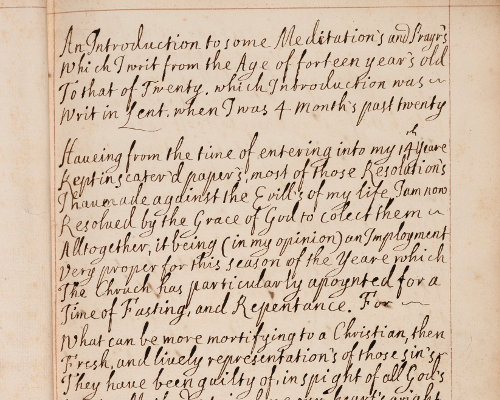 An Introduction to some Meditation's and Prayr's
Which I writ from the Age of forteen year's old
To that of Twenty. which Introduction was ~
Writ in Lent. when I was 4 month's past twenty
Haveing from the time of entering into my 14th Yeare
Kept in scater'd paper's, most of those Resolution's
I have made against the Evill's of my life I am now
Resolved by the Grace of God to colect them ~
Alltogether, it being (in my opinion) an Imployment
Very proper for this season of the Yeare which
The Chruch has particularly apoynted for a
Time of Fasting, and Repentance. For ~
What can be more mortifying to a Christian, then
Fresh, and lively representation's of those sin's
They have been guilty of, in spight of all God's